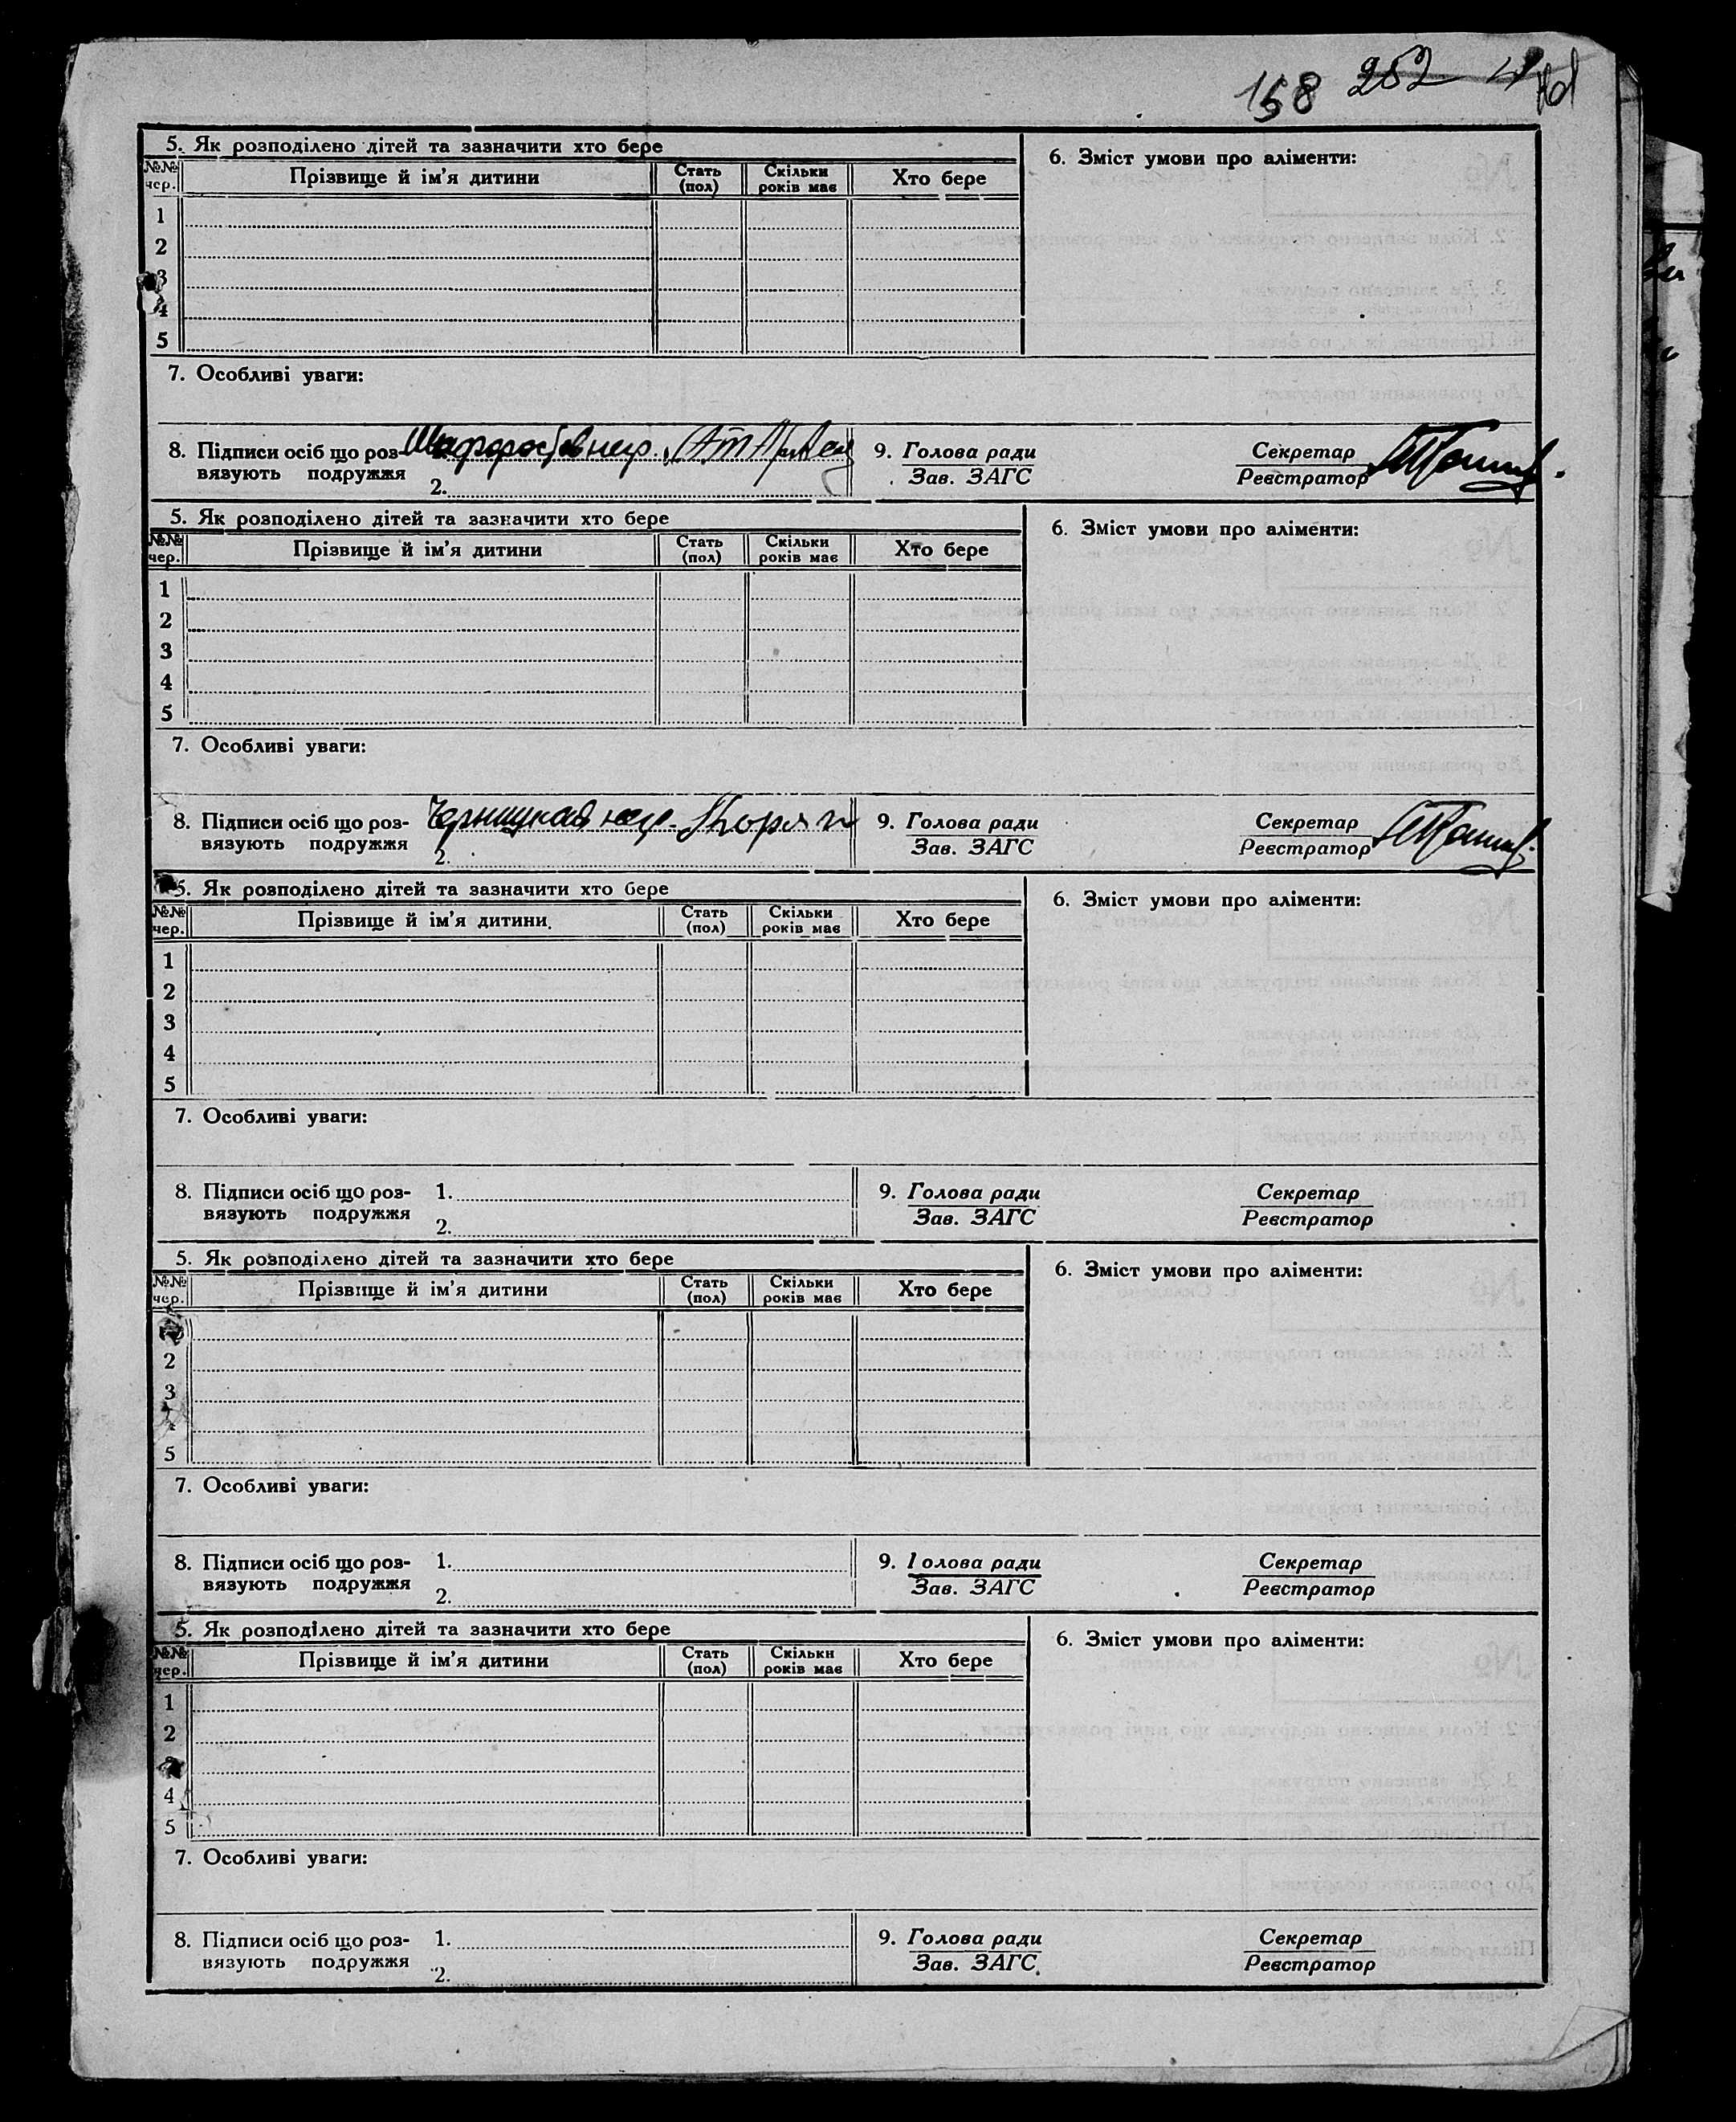 158 252
5. Як розподілено дітей та зазначити хто бере
6. Зміст умови про аліменти:
№№ чер. Прізвище й ім'я дитини Стать (пол) Скільки років має Хто бере
1
2
3
4
5
7. Особливі уваги:
8. Підписи осіб що роз-
вязують подружжя
2.
9. Голова ради
Зав. ЗАГС
Секретар
Реєстратор
5. Як розподілено дітей та зазначити хто бере
6. Зміст умови про аліменти:
№№ чер. Прізвище й ім'я дитини Стать (пол) Скільки років має Хто бере
1
2
3
4
5
7. Особливі уваги:
8. Підписи осіб що роз-
вязують подружжя
2.
9. Голова ради
Зав. ЗАГС
Секретар
Реєстратор
5. Як розподілено дітей та зазначити хто бере
6. Зміст умови про аліменти:
№№ чер. Прізвище й ім'я дитини Стать (пол) Скільки років має Хто бере
1
2
3
4
5
7. Особливі уваги:
8. Підписи осіб що роз-
вязують подружжя
1.
2.
9. Голова ради
Зав. ЗАГС
Секретар
Реєстратор
5. Як розподілено дітей та зазначити хто бере
6. Зміст умови про аліменти:
№№ чер. Прізвище й ім'я дитини Стать (пол) Скільки років має Хто бере
2
3
5
7. Особливі уваги:
8. Підписи осіб що роз-
вязують подружжя
1.
2.
9. Голова ради
Зав. ЗАГС
Секретар
Реєстратор
5. Як розподілено дітей та зазначити хто бере
6. Зміст умови про аліменти:
№№ чер. Прізвище й ім'я дитини Стать (пол) Скільки років має Хто бере
1
2
4
5
7. Особливі уваги:
8. Підписи осіб що роз-
вязують подружжя
1.
2.
9. Голова ради
Зав. ЗАГС
Секретар
Реєстратор